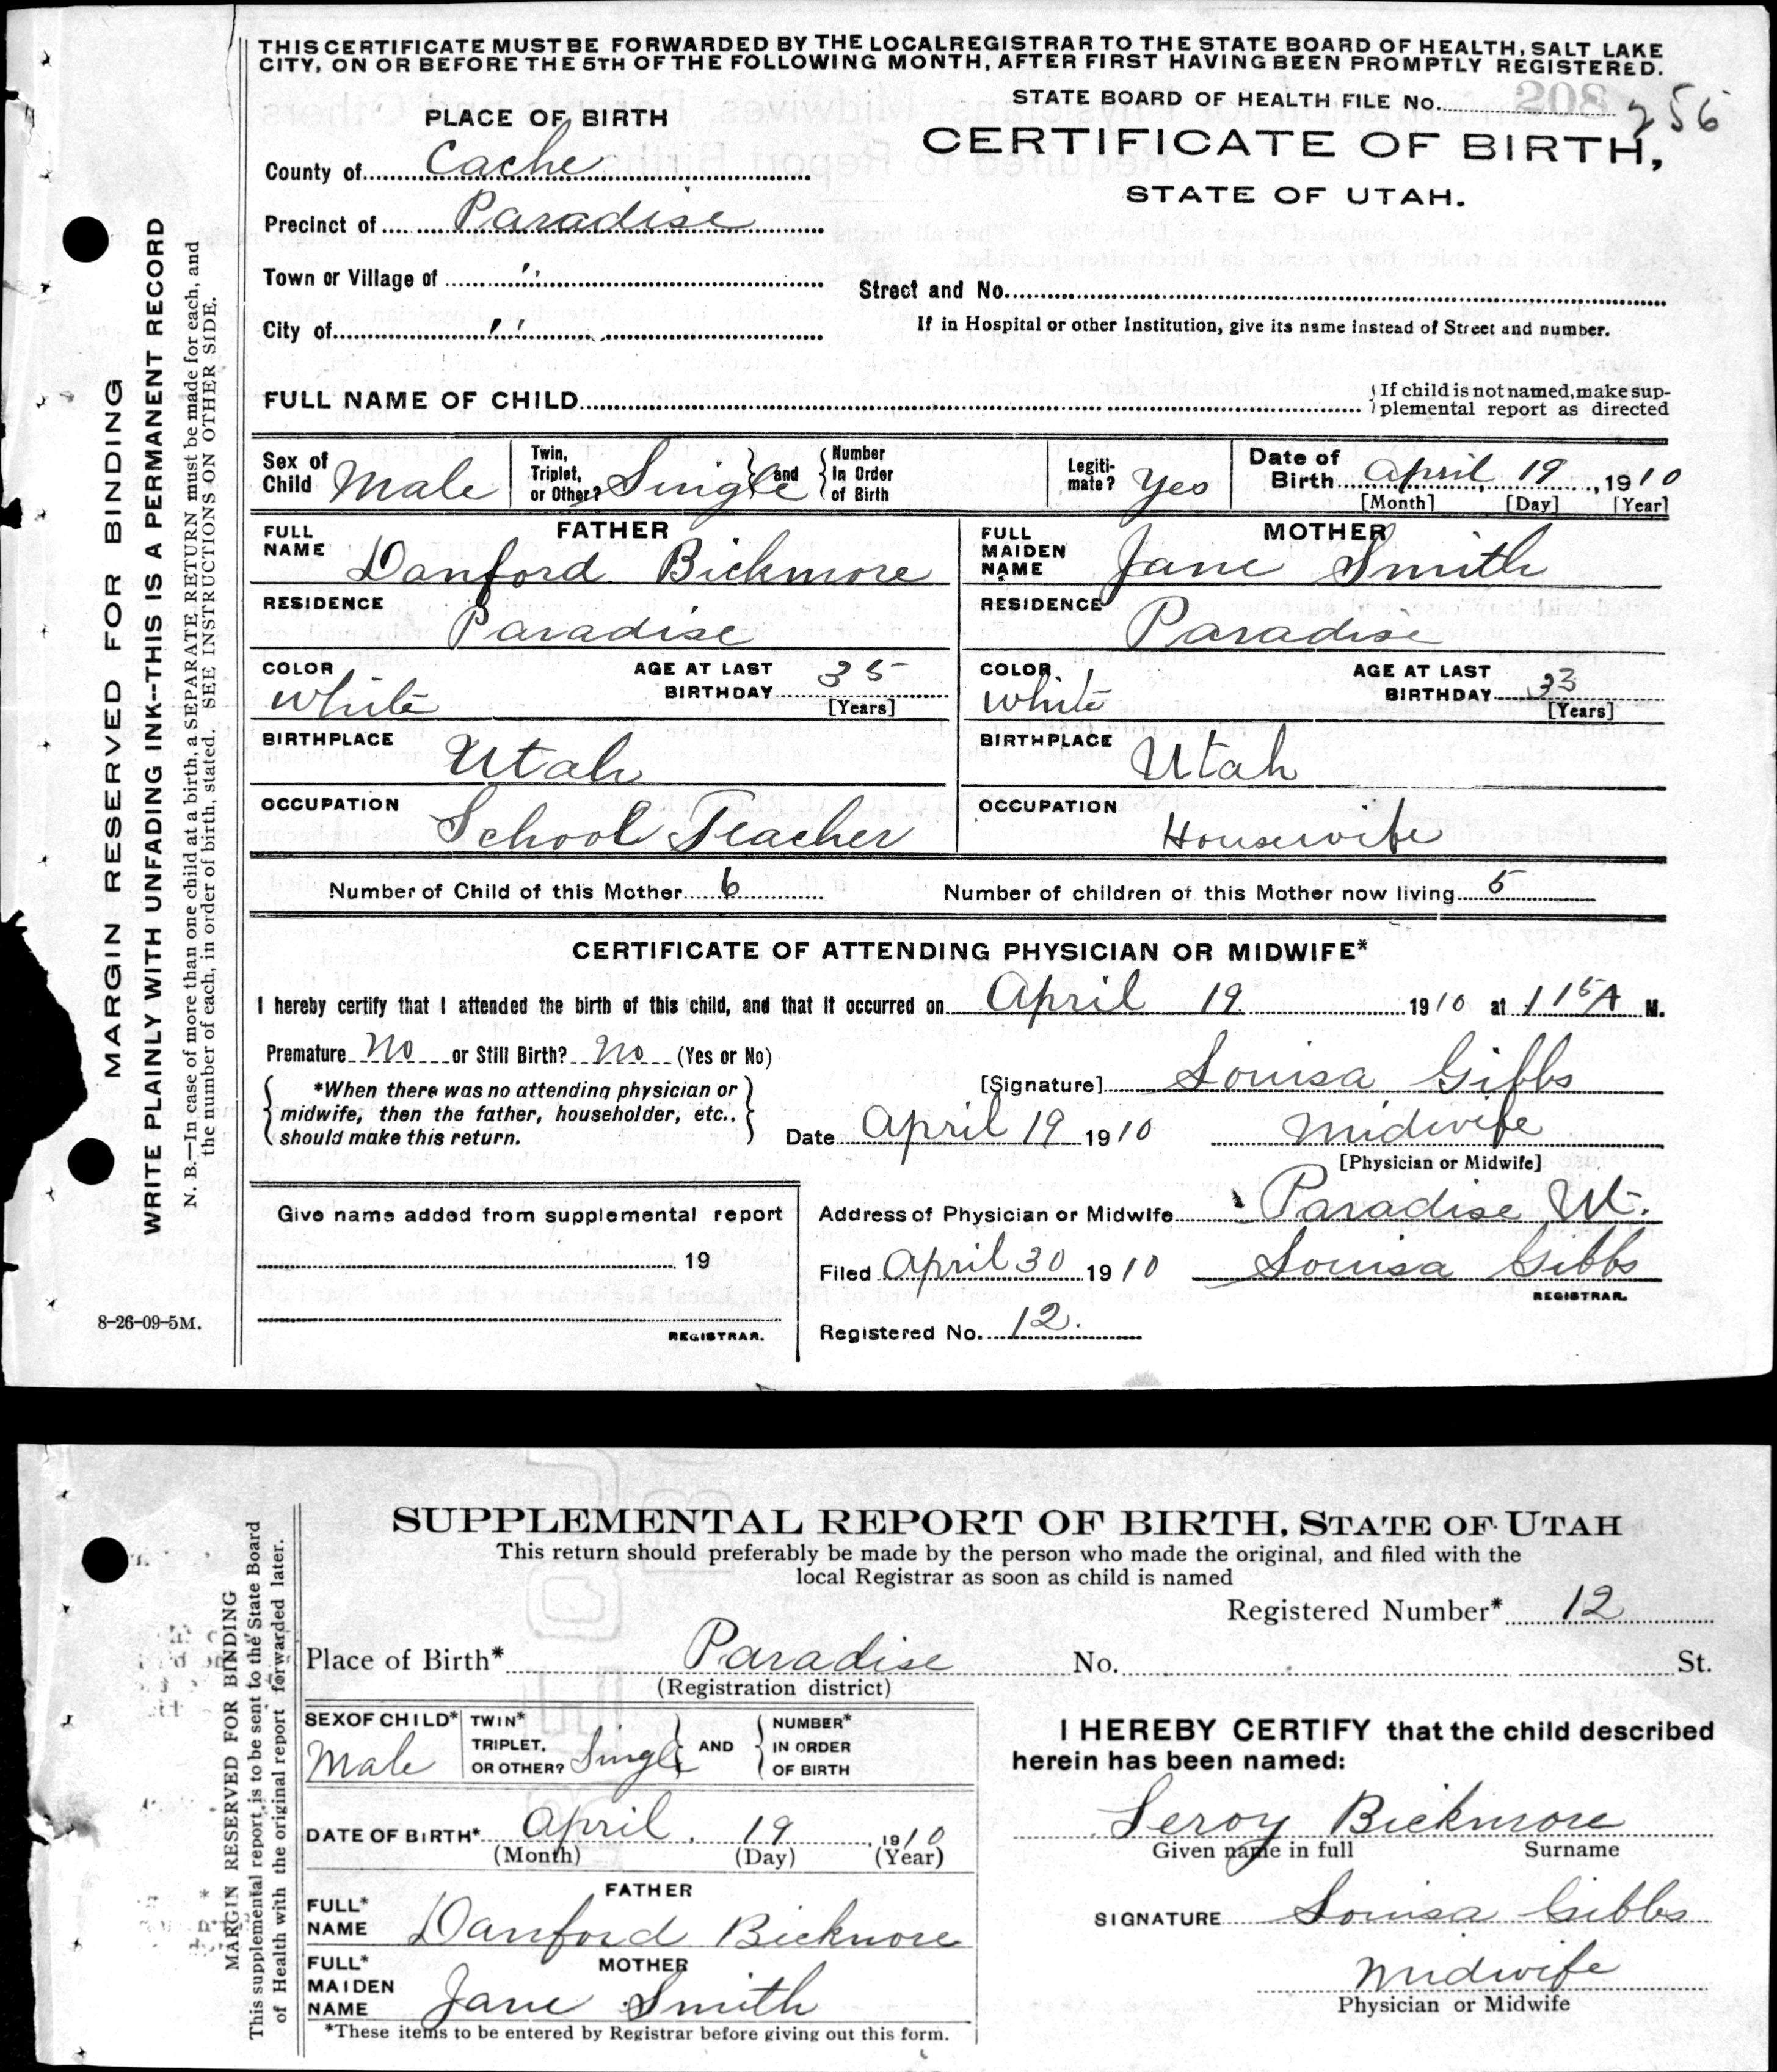 THIS CERTIFICATE MUST BE FORWARDED BY THE LOCAL REGISTRAR TO THE STATE BOARD OF HEALTH, SALT LAKE
CITY, ON OR BEFORE THE 5TH OF THE FOLLOWING MONTH, AFTER FIRST HAVING BEEN PROMPTLY REGISTERED.
STATE BOARD OF HEALTH FILE No. 208 256
PLACE OF BIRTH
CERTIFICATE OF BIRTH,
STATE OF UTAH.
County of Cache
Precinct of Paradise
Town or Village of "
Street and No.
City of "
If in Hospital or other Institution, give its name instead of Street and number.
FULL NAME OF CHILD
If child is not named, make sup-
plemental report as directed
Sex of Child Male
Twin, Triplet, or Other? Single and
Number In Order of Birth
Legiti-mate? Yes
Date of Birth April 19, 1910
[Month] [Day] [Year]
FATHER
FULL NAME Danford Bickmore
RESIDENCE Paradise
COLOR White
AGE AT LAST BIRTHDAY 35
[Years]
BIRTHPLACE Utah
OCCUPATION School Teacher
MOTHER
FULL MAIDEN NAME Jane Smith
RESIDENCE Paradise
COLOR White
AGE AT LAST BIRTHDAY 33
[Years]
BIRTHPLACE Utah
OCCUPATION Housewife
Number of Child of this Mother 6
Number of children of this Mother now living 5
CERTIFICATE OF ATTENDING PHYSICIAN OR MIDWIFE*
I hereby certify that I attended the birth of this child, and that it occurred on April 19. 1910 at 1 15 A M.
Premature No or Still Birth? No (Yes or No)
*When there was no attending physician or
midwife, then the father, householder, etc.,
should make this return.
[Signature] Louisa Gibbs
Date April 19 1910 Midwife
[Physician or Midwife]
Give name added from supplemental report
19
REGISTRAR.
Address of Physician or Midwife Paradise Ut.
Filed April 30 1910 Louisa Gibbs
REGISTRAR.
Registered No. 12.
MARGIN RESERVED FOR BINDING
WRITE PLAINLY WITH UNFADING INK--THIS IS A PERMANENT RECORD
N. B.—In case of more than one child at a birth, a SEPARATE RETURN must be made for each, and
the number of each, in order of birth, stated. SEE INSTRUCTIONS ON OTHER SIDE.
8-26-09-5M.
SUPPLEMENTAL REPORT OF BIRTH, STATE OF UTAH
This return should preferably be made by the person who made the original, and filed with the
local Registrar as soon as child is named
Registered Number* 12
Place of Birth* Paradise No. St.
(Registration district)
SEX OF CHILD* Male
TWIN* TRIPLET, OR OTHER? Single AND
NUMBER* IN ORDER OF BIRTH
DATE OF BIRTH* April 19 1910
(Month) (Day) (Year)
FATHER
FULL* NAME Danford Bickmore
MOTHER
FULL* MAIDEN NAME Jane Smith
*These items to be entered by Registrar before giving out this form.
I HEREBY CERTIFY that the child described
herein has been named:
Leroy Bickmore
Given name in full Surname
SIGNATURE Louisa Gibbs
Midwife
Physician or Midwife
MARGIN RESERVED FOR BINDING
This supplemental report is to be sent to the State Board
of Health with the original report forwarded later.